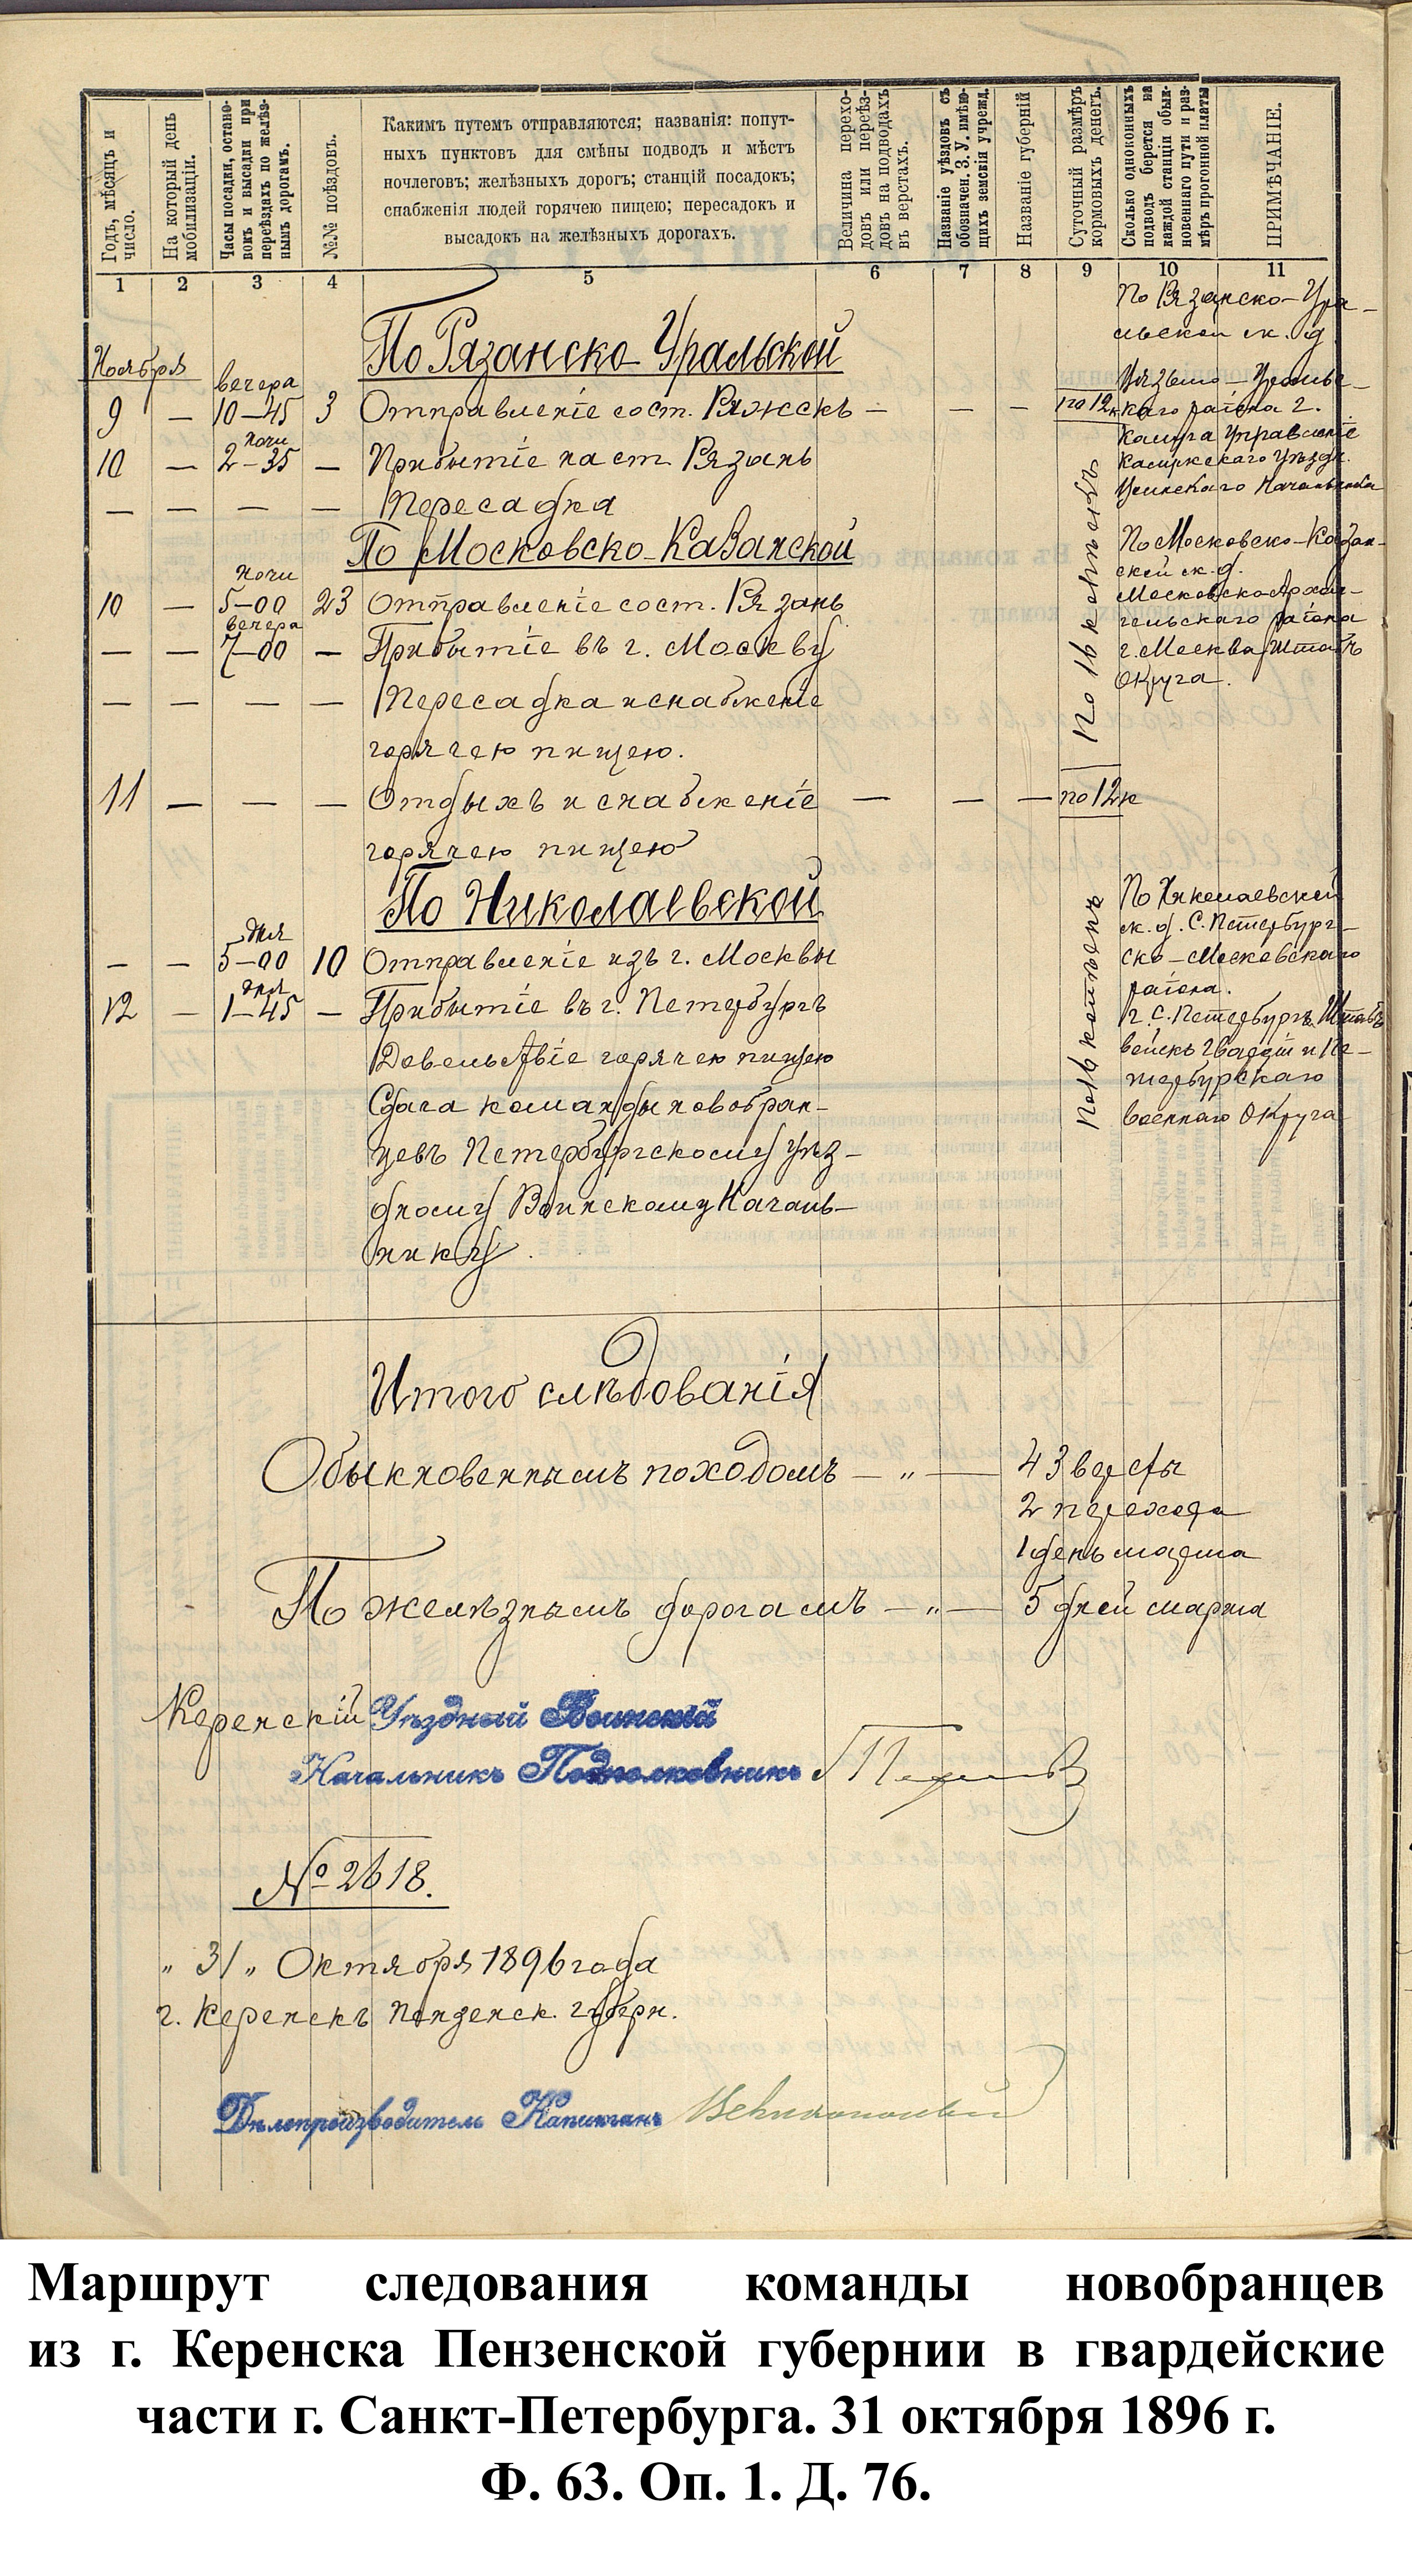 Годъ, мѣсяцъ и число.
На который день мобилизаціи.
Часы посадки, остановокъ и высадки при переѣздахъ по желѣзнымъ дорогамъ.
№№ поѣздовъ.
Какимъ путемъ отправляются; названія: попут-
ныхъ пунктовъ для смѣны подводъ и мѣстъ
ночлеговъ; желѣзныхъ дорогъ; станцій посадокъ;
снабженія людей горячею пищею; пересадокъ и
высадокъ на желѣзныхъ дорогахъ.
Величина перехо-
довъ или переѣз-
довъ на подводахъ
въ верстахъ.
Названіе уѣздовъ съ
обозначен. З. У. имѣю-
щихъ земскія учрежд.
Названіе губерній
Суточный размѣръ
кормовыхъ денегъ.
Сколько одноконныхъ
подводъ берется на
каждой станціи обык-
новеннаго пути и раз-
мѣръ прогонной платы
ПРИМѢЧАНІЕ.
1 2 3 4 5 6 7 8 9 10 11
По Рязанско-Ура-
льской ж. д.
По Рязанско-Уральской
Ноября
вечера
9 — 10—45 3 Отправленіе со ст. Ряжскъ — — — по 12к
каго раіона г.
Калуга Управленіе
ночи
10 — 2—35 — Прибытіе на ст. Рязань
Уѣзда.
Воинскаго Начальника
— — — — Пересадка
По 16 копѣекъ
По Московско-Казанской
По Московско-Казан-
ской ж. д.
Московско-Архан-
гельскаго раіона
г. Москва Штабъ
Округа.
ночи
10 — 5—00 23 Отправленіе со ст. Рязань
вечера
— — 7—00 — Прибытіе въ г. Москву
— — — — Пересадка и снабженіе
горячею пищею.
11 — — — Отдыхъ и снабженіе — — — по 12к
горячею пищею
По Николаевской
По Николаевской
ж. д. С. Петербург-
ско-Московскаго
раіона.
г. С. Петербургъ Штабъ
войскъ Гвардіи и Пе-
тербурскаго
военнаго Округа
По 16 копѣекъ
дня
— — 5—00 10 Отправленіе изъ г. Москвы
дня
12 — 1—45 — Прибытіе въ г. Петербургъ
Довольствіе горячею пищею
Сдача команды новобран-
цевъ Петербургскому Уѣз-
дному Воинскому Началь-
нику.
Итого слѣдованія
Обыкновеннымъ походомъ — „ — 43 версты
2 перехода
1 день марша
По желѣзнымъ дорогамъ — „ — 5 дней марша
Керенскій Уѣздный Воинскій
Начальникъ Подполковникъ
№ 2618.
„ 31 „ Октября 1896 года
г. Керенскъ Пензенск. губерн.
Дѣлопроизводитель Капитанъ
Маршрут следования команды новобранцев
из г. Керенска Пензенской губернии в гвардейские
части г. Санкт-Петербурга. 31 октября 1896 г.
Ф. 63. Оп. 1. Д. 76.